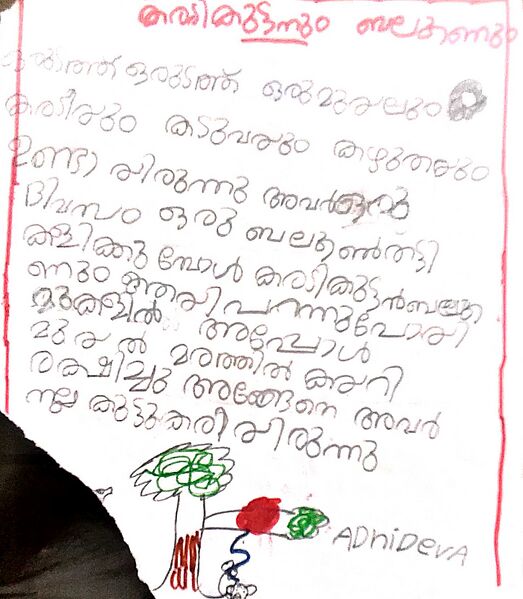 കരടികുട്ടനും ബലൂണും
ഒരിടത്ത് ഒരുടത്ത് ഒരു മുയലും
കരടിയും കടുവയും കഴുതയും
ഉണ്ടായിരുന്നു അവർ ഒരു
ദിവസം ഒരു ബലൂൺതട്ടി
കളിക്കുമ്പോൾ കരടികുട്ടൻബലൂ
ണും ആയി പറന്നുപോയി
മുകളിൽ അപ്പോൾ
മുയൽ മരത്തിൽ കയറി
രക്ഷിച്ചു അങ്ങേനെ അവർ
നല്ല കുട്ടുകരീയിരുന്നു
ADhiDevA